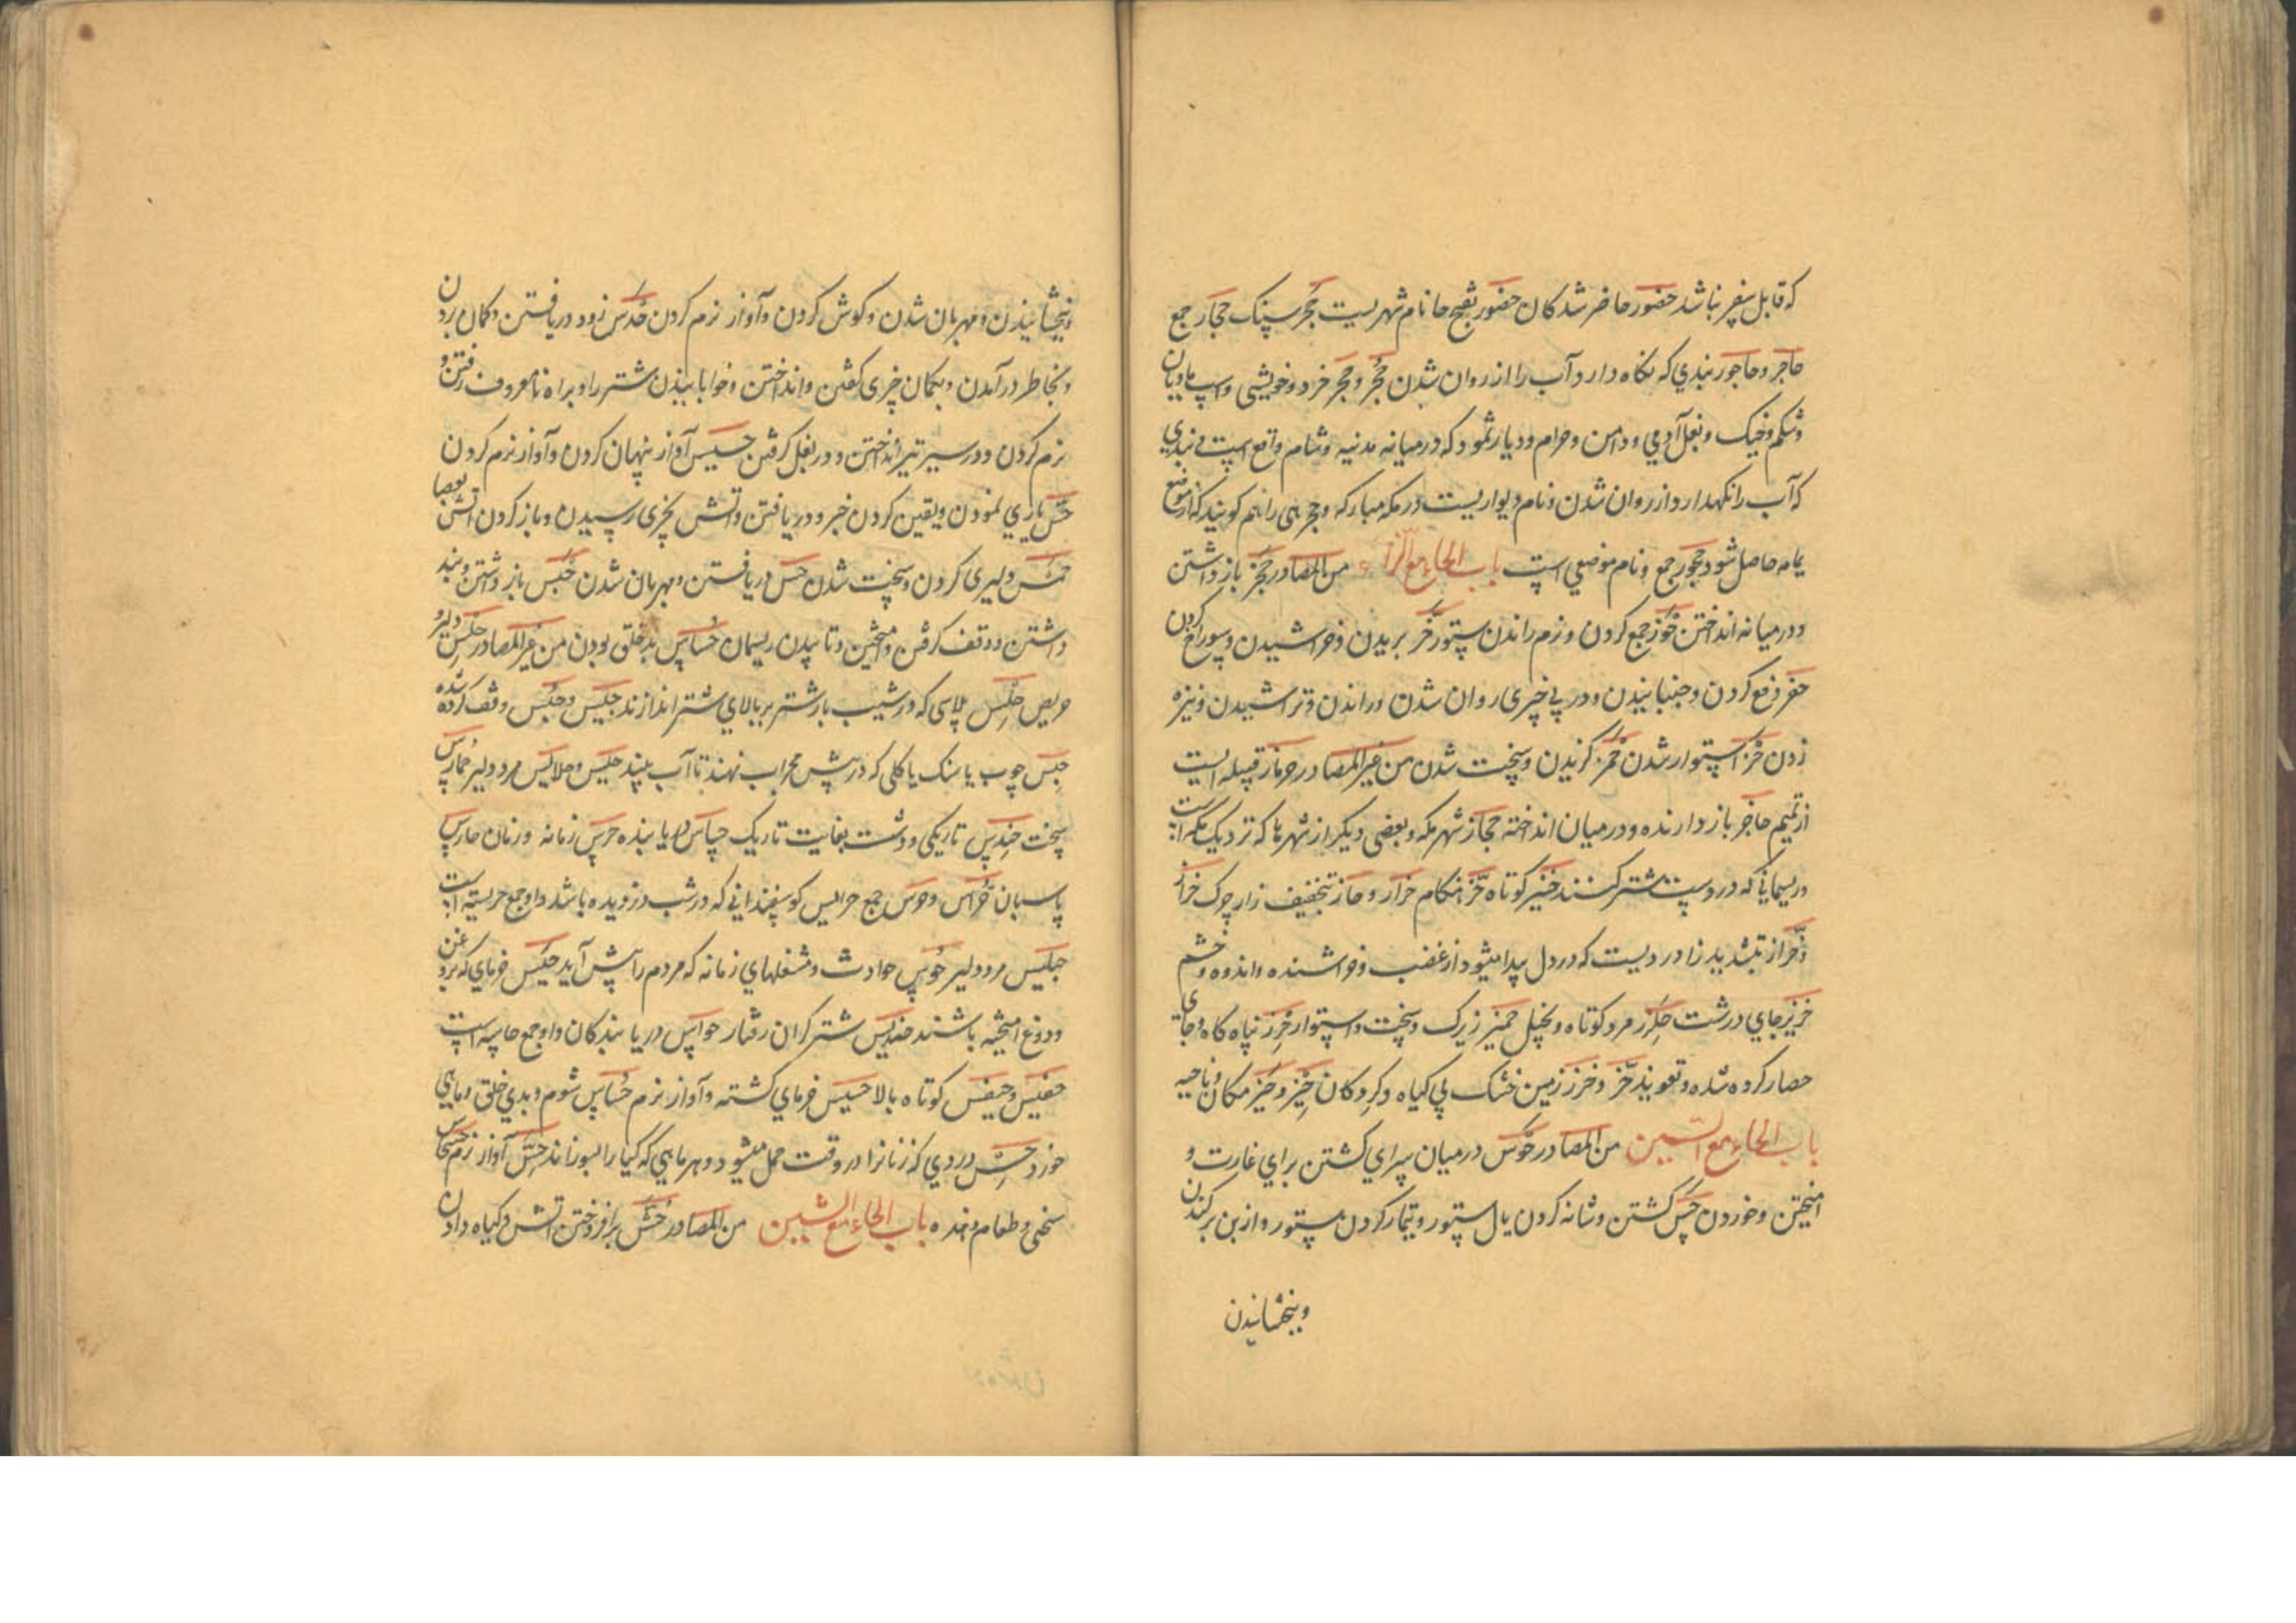 که قابل سفر نباشد حضور حاضر شدکان حضور بفتح حا نام شهریست حجر سنک حجار جمع
حاجر و حاجور بندی که نکاه دارد آب را از روان شدن حجر و حجر خرد و خویشی و اسپ مادیان
و شکم و خیک و بغل آدمی و دامن و حرام و دیار ثمود که درمیانه مدنیه و شام واقع است بندی
که آب را نکهدارد از روان شدن و نام دیواریست در مکه مبارکه و حجر را هم کویند که از موضع
یمامه حاصل شود حجور جمع و نام موضعی است باب الحاء مع الزاء من المصادر حجز باز داشتن
و درمیانه انداختن حوز جمع کردن و نرم راندن ستور حز بریدن و خراشیدن و سوراخ کردن
حفز دفع کردن و جنبانیدن و در پی چیزی روان شدن و راندن و تراشیدن و نیزه
زدن حرز استوار شدن حمز کزیدن و سخت شدن من غیر المصادر حرماز قبیله ایست
از تمیم حاجز باز دارنده و درمیان انداخته حجاز شهر مکه و بعضی دیکر از شهرها که نزدیک مکه است
و ریسمانی که در دست شتر کنند حنیز کوتاه حز هنکام حزاز و حاز بتخفیف زا چرک حزاز
حزاز بتشدید زا دردیست که در دل پیدا میشود از غضب و خراشنده و اندوه و خشم
حزیز جای درشت حلز مرد کوتاه و بخیل حمیز زیرک و سخت و استوار حرز پناه کاه و جای
حصار کرده شده و تعویذ حرز و خرز زمین خشک بی کیاه و کروکان حیز و حیز مکان و ناحیه
باب الحاء مع السین من المصادر حوس درمیان سرای کشتن برای غارت و
امیختن و خوردن حس کشتن و شانه کردن یال ستور و تیمار کردن ستور و از بن برکندن
وبخشانیدن
وبخشانیدن و مهربان شدن و کوش کردن و آواز نرم کردن حدس زود دریافتن و کمان بردن
و بخاطر درآمدن و بکمان چیزی کفتن و انداختن و خوابانیدن شتر را و براه نامعروف رفتن و
نرم کردن و در سیر تیر انداختن و در بغل کرفتن حسیس آواز پنهان کردن و آواز نرم کردن
حس یاری نمودن و یقین کردن خبر و دریافتن و اتش بچیزی رسیدن و باز کردن اتش بعصا
حمس دلیری کردن و سخت شدن حس دریافتن و مهربان شدن حبس باز داشتن و بند
داشتن و وقف کرفتن و امیختن و تابیدن ریسمان حساس بدخلق بودن من غیر المصادر حلس دلیر و
حریص حلس پلاسی که در شیب بار شتر بر بالای شتر اندازند حبیس و حبس وقف کرده شده
حبس چوب یا سنک یا کلی که در پیش محراب نهند تا آب بیند حلبس و حلابس مرد دلیر حمارس
سخت حندس تاریکی و دشت بغایت تاریک حساس دریابنده حرس زمانه و زمان حارس
پاسبان حراس و حرس جمع حرایس کوسفندانی که در شب دزدیده باشد و او جمع حریسه است
حبلبس مرد دلیر حوس حوادث و شغلهای زمانه که مردم را پیش آید حیس خرمای که بروغن
و دوغ امیخته باشند حندلس شتر کران رفتار حواس دریابندکان و او جمع حاسه است
حفیس و حیفس کوتاه بالا حسیس خرمای کشته و آواز نرم حساس شوم و بدی خلق و ماهی
خورد حس دردی که زنانرا در وقت حمل میشود و سرمایی که کیاه را بسوزاند حس آواز نرم
سخی و طعام وخده باب الحاء مع الشین من المصادر حش بر افروختن اتش و کیاه دادن